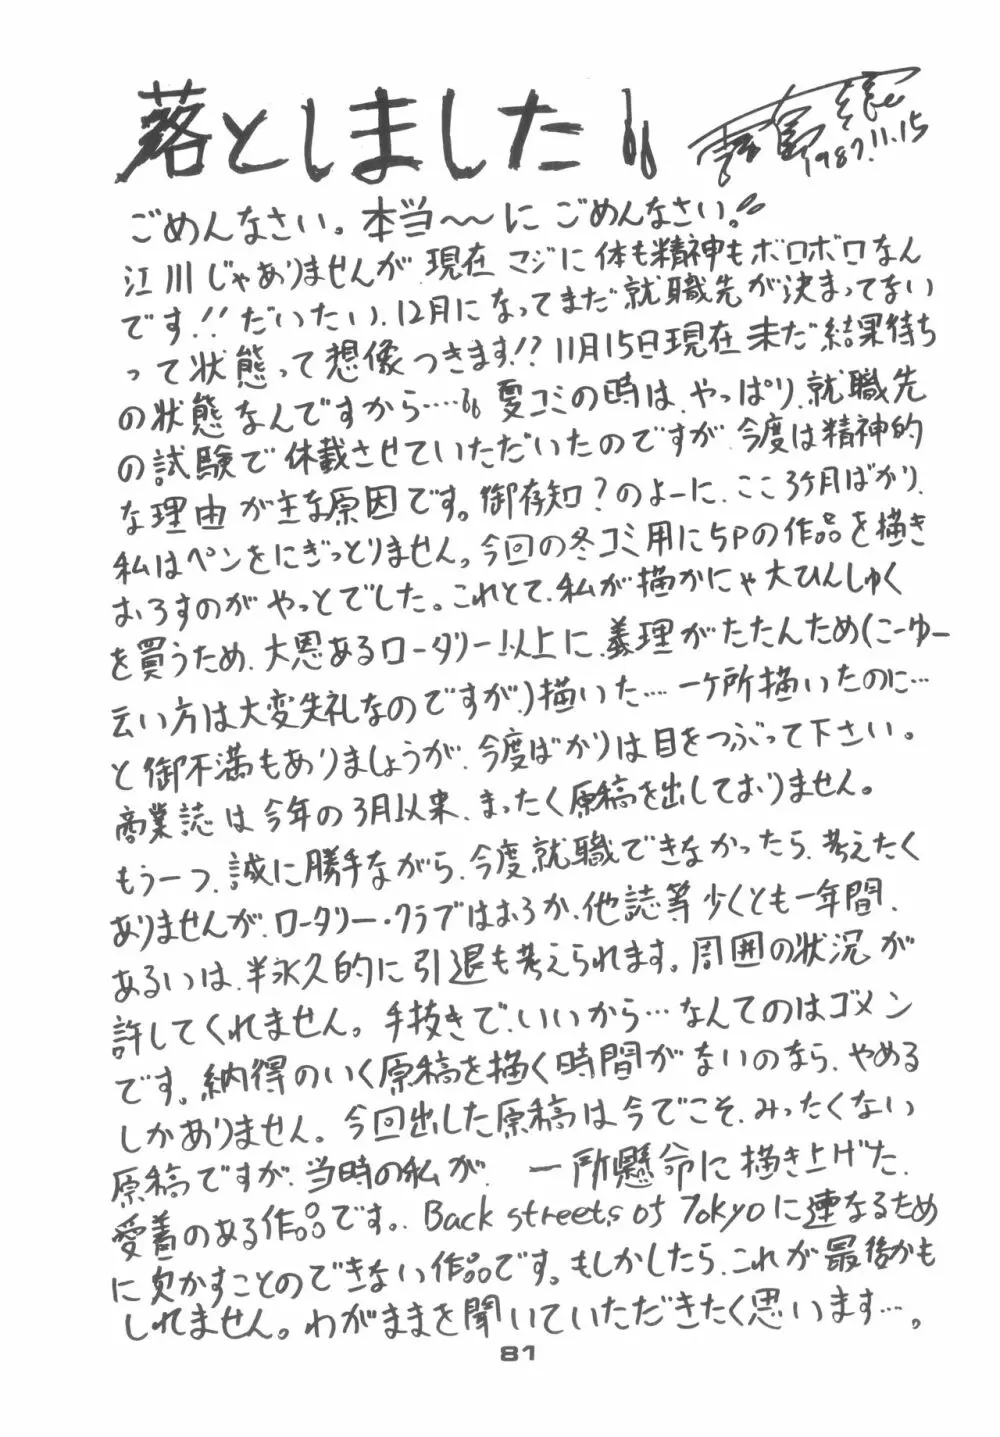 落としました
1987.11.15
ごめんなさい。本当〜〜にごめんなさい。
江川じゃありませんが現在マジに体も精神もボロボロなん
です!!だいたい、12月になってまだ就職先が決まってない
って状態って想像つきます!?11月15日現在未だ結果待ち
の状態なんですから……夏コミの時は、やっぱり、就職先
の試験で休載させていただいたのですが、今度は精神的
な理由が主な原因です。御存知?のよーに、ここ3ヶ月ばかり、
私はペンをにぎっとりません。今回の冬コミ用に5Pの作品を描き
おろすのがやっとでした。これとて、私が描かにゃ大ひんしゅく
を買うため、大恩あるロータリー以上に、義理がたたんため(こーゆー
云い方は大変失礼なのですが)描いた…一ヶ所描いたのに…
と御不満もありましょうが、今度ばかりは目をつぶって下さい。
商業誌は今年の3月以来、まったく原稿を出しておりません。
もう一つ、誠に勝手ながら、今度就職できなかったら、考えたく
ありませんが、ロータリー・クラブはおろか、他誌等少くとも一年間、
あるいは、半永久的に引退も考えられます。周囲の状況が
許してくれません。手抜きで、いいから…なんてのはゴメン
です。納得のいく原稿を描く時間がないのなら、やめる
しかありません。今回出した原稿は今でこそ、みったくない
原稿ですが、当時の私が、一所懸命に描き上げた、
愛着のある作品です。Back streets of Tokyoに連なるため
に欠かすことのできない作品です。もしかしたら、これが最後かも
しれません。わがままを聞いていただきたく思います…。
81